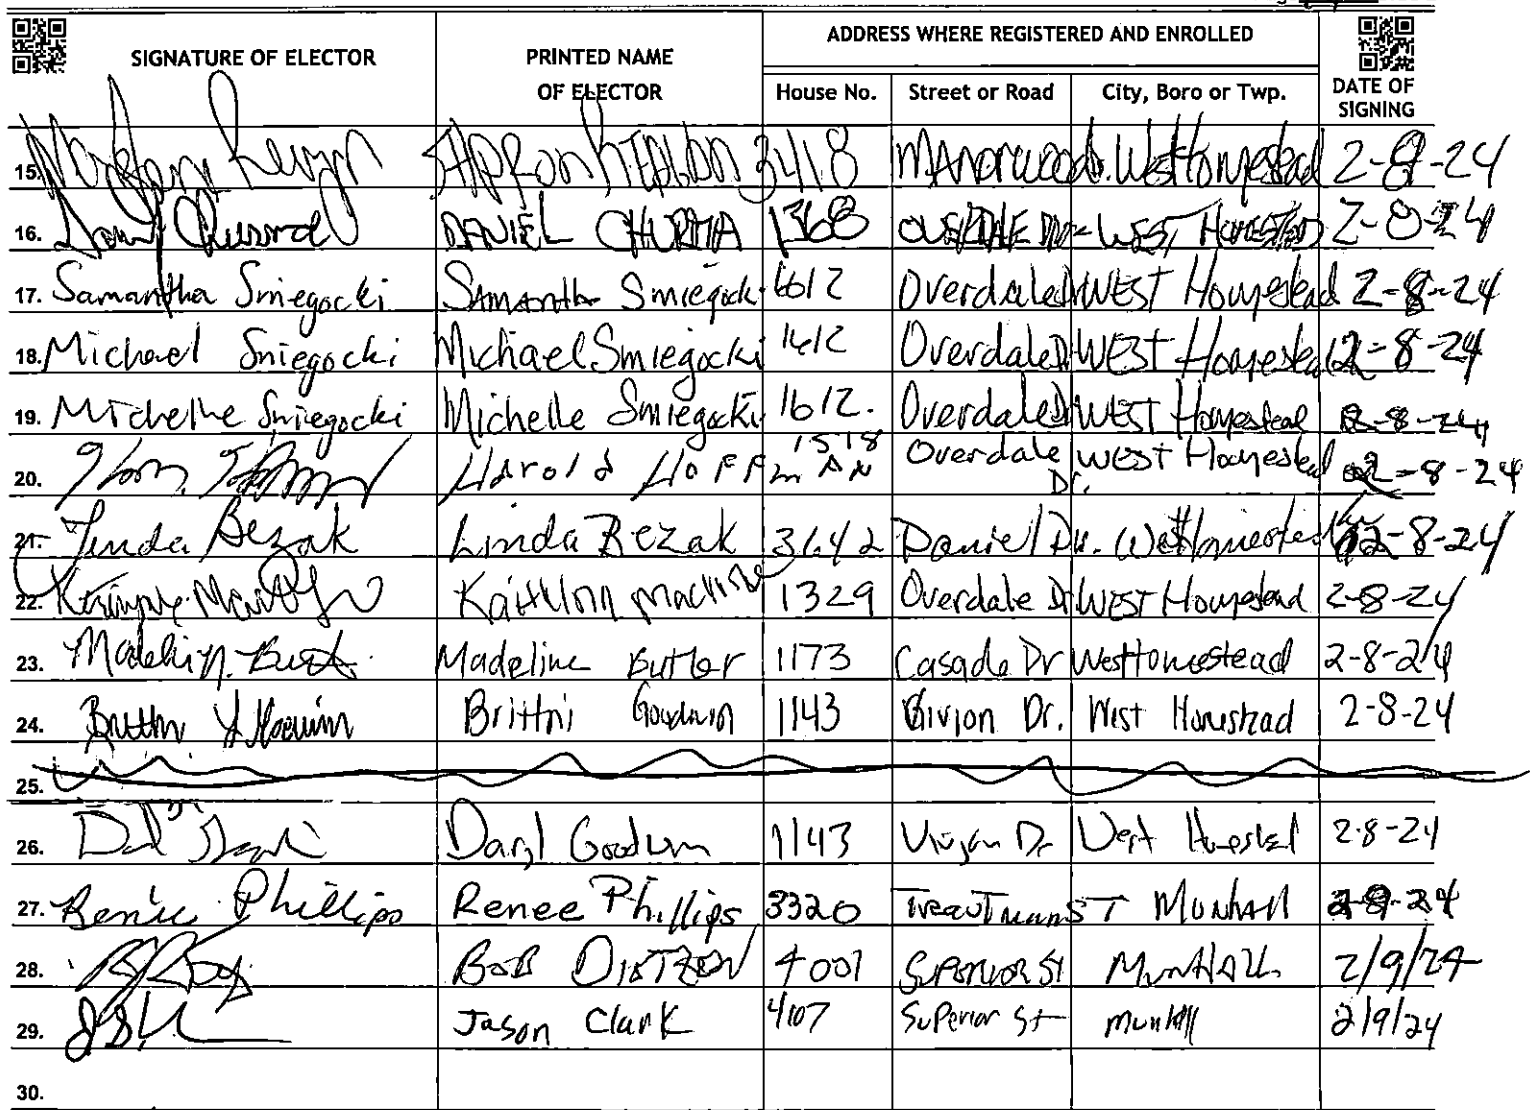 SIGNATURE OF ELECTOR PRINTED NAME OF ELECTOR ADDRESS WHERE REGISTERED AND ENROLLED DATE OF SIGNING
House No. Street or Road City, Boro or Twp.
15. 3418 Manorwood. West Homestead 2-8-24
16. DANIEL CHURMA 1368 West Homestead 2-8-24
17. Samantha Smiegocki Samantha Smiegocki 1612 Overdale Dr West Homestead 2-8-24
18. Michael Smiegocki Michael Smiegocki 1612 Overdale Dr West Homestead 2-8-24
19. Michelle Smiegocki Michelle Smiegocki 1612. Overdale Dr West Homestead 2-8-24
20. Harold Hoffman 1518 Overdale Dr. West Homestead 2-8-24
21. Linda Bezak Linda Bezak 3642 Daniel Dr. West Homestead 2-8-24
22. Kaitlynn 1329 Overdale Dr West Homestead 2-8-24
23. Madeline Butler 1173 Casade Dr West Homestead 2-8-24
24. Brittni Goodwin 1143 Dr. West Homestead 2-8-24
25.
26. Daryl Goodwin 1143 Vivian Dr West Homestead 2-8-24
27. Renee Phillips Renee Phillips 3320 Treautman ST Munhall 2-8-24
28. BOB DIETZEN 4001 Superior St Munhall 2/9/24
29. Jason Clark 4107 Superior St Munhall 2/9/24
30.